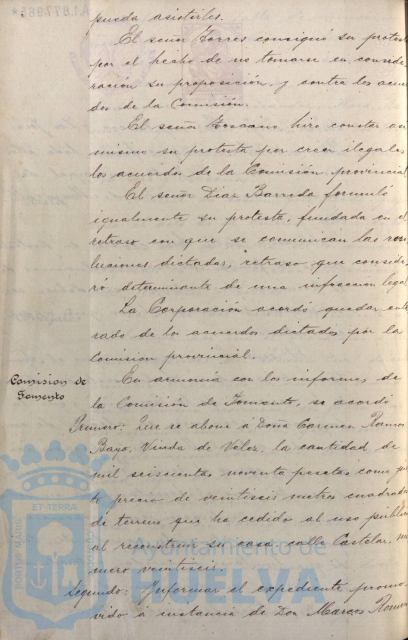 pueda asistirles.
El señor Torres consignó su protesta
por el hecho de no tomarse en conside-
ración su proposición, y contra los acuer-
dos de la Comisión.
El señor Toscano hizo constar as
mismo su protesta por creer ilegales
los acuerdos de la Comisión provincial
El señor Diaz Barreda formuló
igualmente su protesta, fundada en el
retraso con que se comunican las reso-
luciones dictadas, retraso que conside-
ró determinante de una infraccion legal
La Corporación acordó quedar ente-
rado de los acuerdos dictados por la
Comision provincial.
Comision de
Fomento
En armonía con los informes de
la Comisión de Fomento, se acordó
Primero: Que se abone a Doña Carmen Ramos
Bayo, Viuda de Velez, la cantidad de
mil seiscientas noventa pesetas como jus
to precio de veintiseis metros cuadrados
de terreno que ha cedido al uso público
al reconstruir su casa calle Castelar, nu
mero veintiseis.
Segundo: Informar el expediente promo
vido á instancia de Don Marcos Romer
PORTUS MARIS
ET TERRÆ
CUSTODIA
Ayuntamiento de
HUELVA